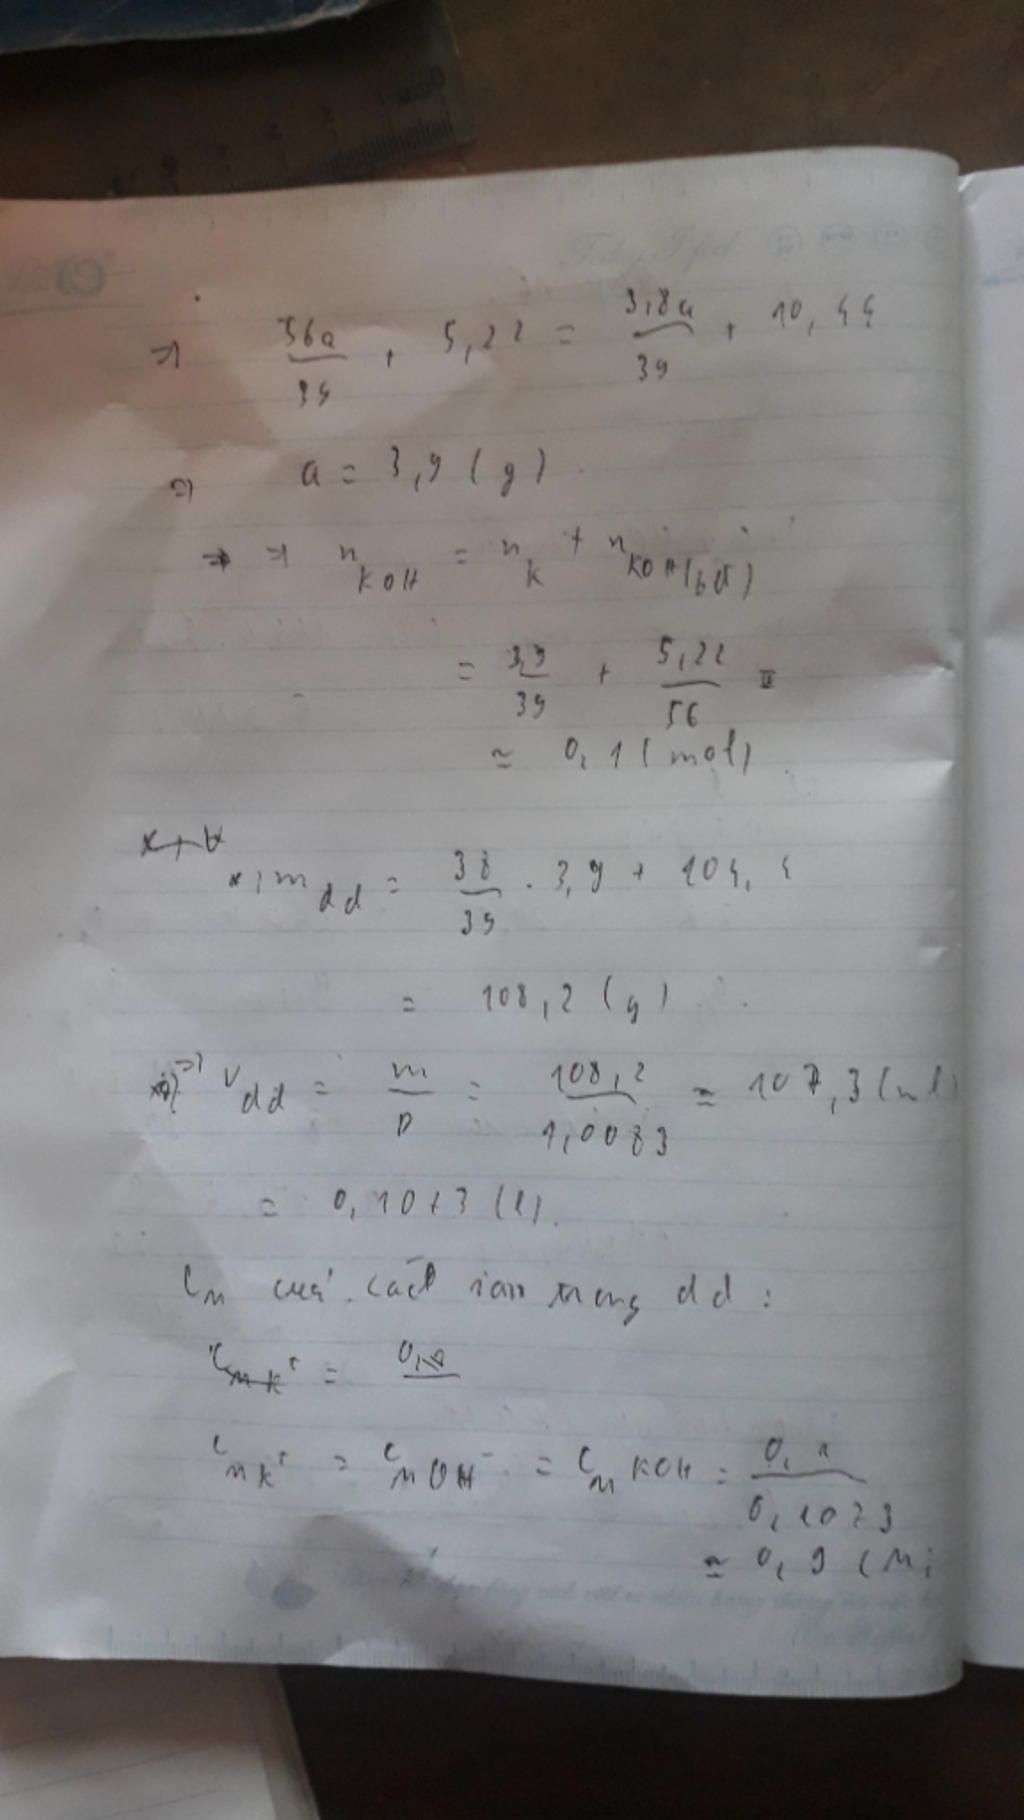 => 56a/39 + 5,22 = 3,8a/39 + 10,44
=> a = 3,9 (g).
=> n KOH = n K + n KOH(bđ)
= 3,9/39 + 5,22/56
≃ 0,1 (mol).
*, m dd = 38/39 . 3,9 + 104,4
= 108,2 (g)
=> V dd = m/D = 108,2/1,0083 ≃ 107,3 (ml)
= 0,1073 (l).
CM của các ion trong dd :
CM K+ =
CM K+ = CM OH- = CM KOH = 0,1/0,1073
≃ 0,9 (M)